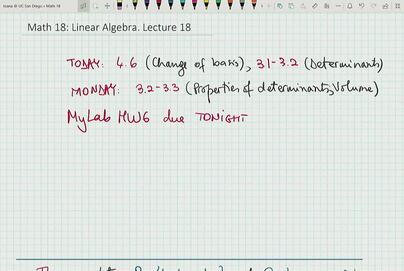 Ioana @ UC San Diego • Math 18
Math 18: Linear Algebra. Lecture 18
TODAY: 4.6 (Change of basis), 3.1-3.2 (Determinants)
MONDAY: 3.2-3.3 (Properties of determinants, Volume)
MyLab HW6 due TONIGHT